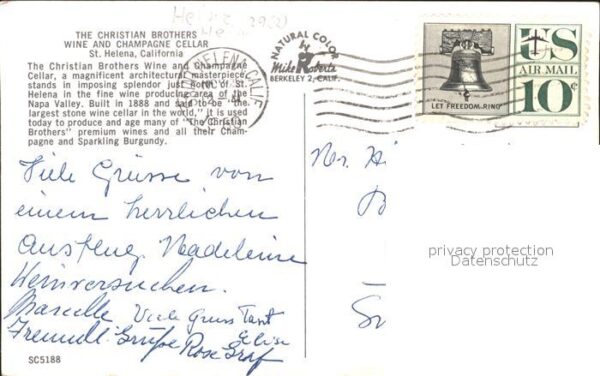 THE CHRISTIAN BROTHERS
WINE AND CHAMPAGNE CELLAR
St. Helena, California
The Christian Brothers Wine and Champagne
Cellar, a magnificent architectural masterpiece,
stands in imposing splendor just north of St.
Helena in the fine wine producing area of the
Napa Valley. Built in 1888 and said to be "the
largest stone wine cellar in the world," it is used
today to produce and age many of "The Christian
Brothers" premium wines and all their Cham-
pagne and Sparkling Burgundy.
NATURAL COLOR
Mike Roberts
BERKELEY 2, CALIF.
HELENA, CALIF
LET FREEDOM RING
US
AIR MAIL
10¢
Viele Grüsse von
einem herrlichen
Ausflug. Madeleine
Weinversuchen.
Marcelle Viele Gruss Tant
Freundl. Grüße Rose Graf
privacy protection
Datenschutz
SC5188